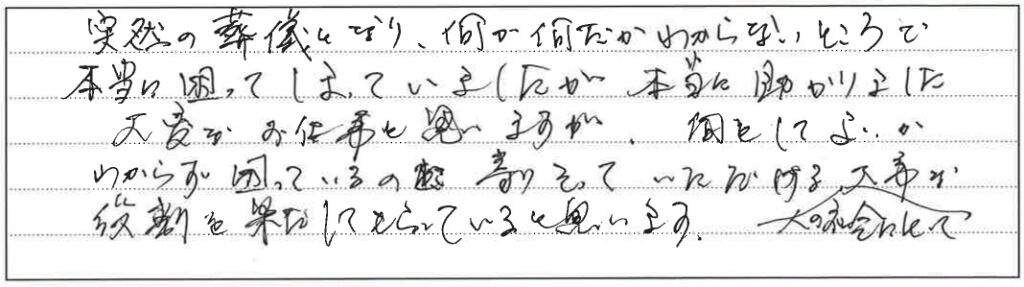 突然の葬儀となり、何が何だかわからないところで
本当に困ってしまっていましたが 本当に助かりました
大変なお仕事と思いますが、何をしてよいか
わからず困っているの 寄りそっていただける大事な
役割を果たしてもらっていると思います。
人の社会にとって